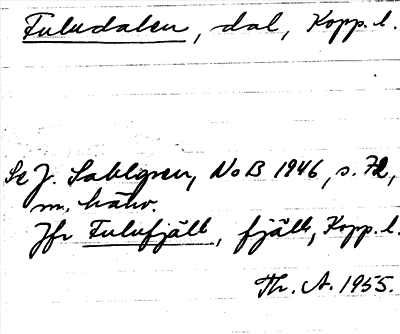 Fuludalen, dal, Kopp. l.
Se J. Sahlgren, NoB 1946, s. 72,
m. hänv.
Jfr Fulufjäll, fjäll, Kopp. l.
Th. A. 1955.